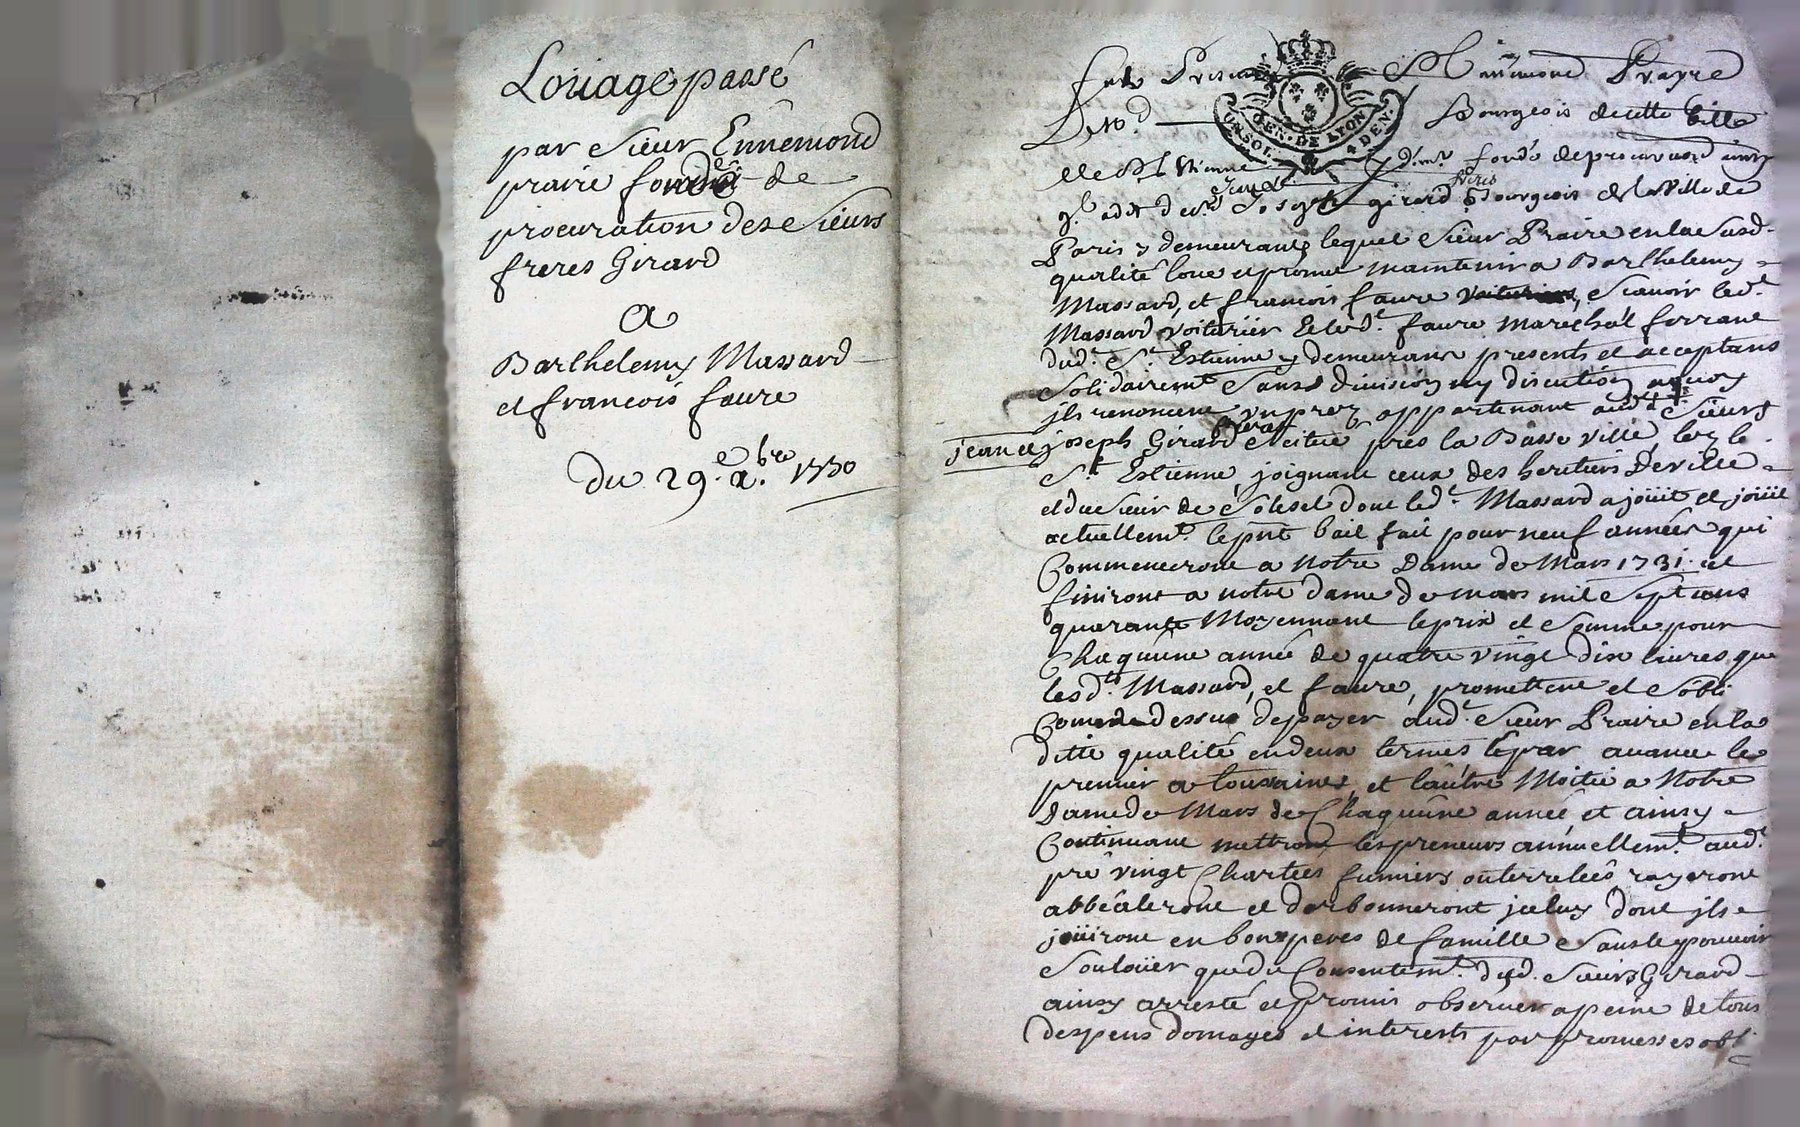 Loüage passé
par Sieur Ennemond
praire fondé de
procuration des Sieurs
freres Girard
a
Barthelemy Massard
et françois faure
Du 29.e x.bre 1730
fut Present Ennemond Prayre
Bourgeois de cette Ville
GEN. DE LYON
UN SOL. 4 DEN.
de St Etienne fondé de procuration
freres
Joseph girard Bourgeois de la Ville de
Paris y demeurants lequel Sieur Praire en la susd.
qualité loue et promet maintenir a Barthelemy
Massard, et francois faure voituriers, Scavoir led.t
Massard voiturier Et led.t faure Marechal ferrant
dud.t St Estienne y demeurans presents et acceptans
Solidairemt Sans division ny discution a quoy
ils renoncent un prez appartenant aud.ts Sieurs
jean et joseph Girard freres Scitué prés la Basse ville, lez le
St Estienne, joignant ceux des heritiers Deville
et du Sieur de Solesel dont led.t Massard a joüit et joüit
actuellemt. le pnt bail fait pour neuf années qui
Commenceront a Notre Dame de Mars 1731. et
finiront a notre dame de mars mil Sept cens
quarante Moyennant le prix et Somme pour
Chaquune année de quatre vingt dix livres que
lesd.ts Massard, et faure, promettent et S'obli
Comme dessus de payer aud.t Sieur Praire en la
ditte qualité en deux termes et par avance le
premier a toussaints, et l'autre Moitié a Notre
Dame de Mars de Chaquune année et ainsy
Continuant mettront les preneurs annuellemt. aud.t
pré vingt Chartées fumiers outerrelées rayeront
abbéaleront et darbonneront jceluy dont jls
joüiront en bons peres de famille Sans le pouvoir
Soulouër que du Consentemt. desd. Sieurs Girard
ainsy arresté et promis observer a peine de tous
despens domages et interests par promesses obli